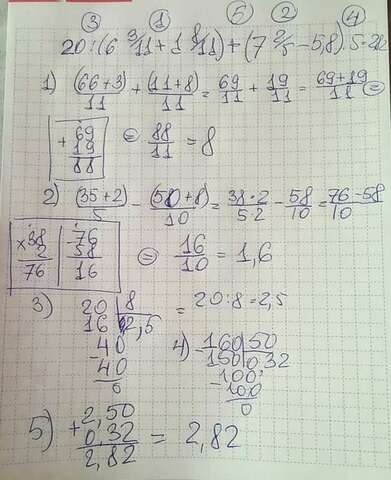 ③ ① ⑤ ② ④
20:(6 3/11+1 8/11)+(7 2/5-5,8).5=
1) (66+3)/11 + (11+8)/11 = 69/11 + 19/11 = (69+19)/11 =
+ 69 19 88 = 88/11 = 8
2) (35+2)/5 - (50+8)/10 = 38·2/5·2 - 58/10 = 76-58/10
×38 2 76 -76 58 16 = 16/10 = 1,6
3) 20 8 = 20:8=2,5
16 2,5
-40
40
0
4) -160 50
150 0,32
-100
100
0
5) + 2,50
0,32 = 2,82
2,82